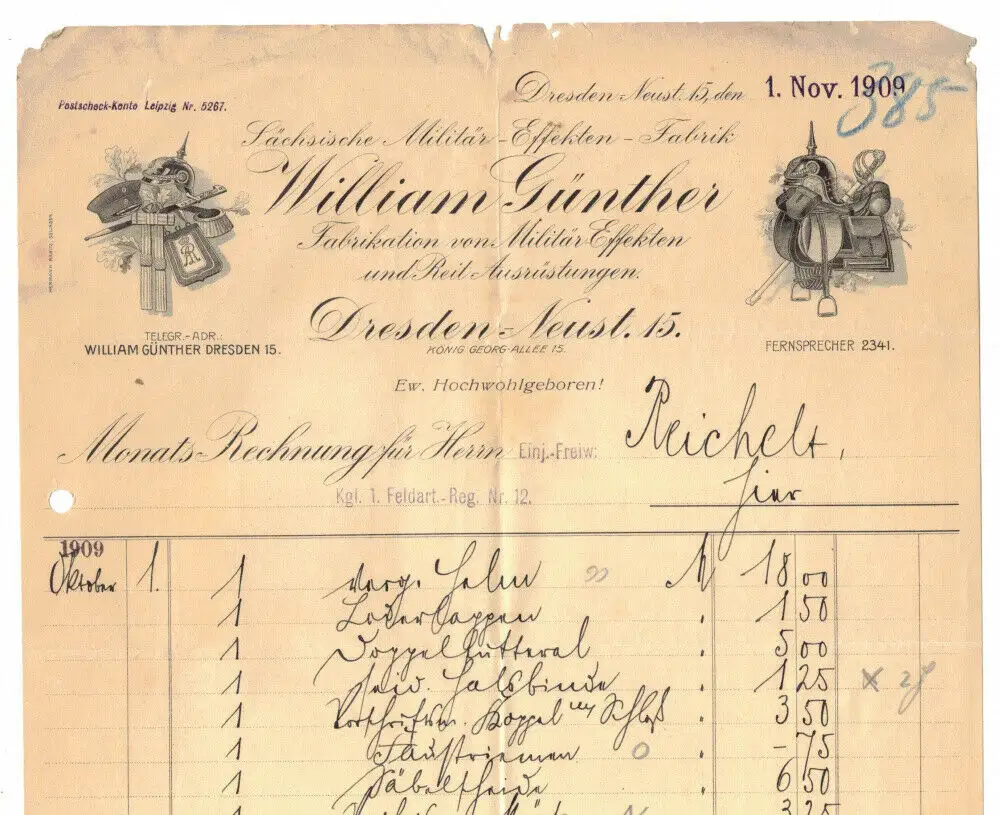 Postscheck-Konto Leipzig Nr. 5267.
Dresden-Neust. 15, den 1. Nov. 1909
385
Sächsische Militär-Effekten-Fabrik
William Günther
Fabrikation von Militär Effekten
und Reit Ausrüstungen.
Dresden-Neust. 15.
KÖNIG GEORG-ALLEE 15.
TELEGR.-ADR.:
WILLIAM GÜNTHER DRESDEN 15.
FERNSPRECHER 2341.
Ew. Hochwohlgeboren!
Monats-Rechnung für Herrn Einj.-Freiw: Reichelt,
Kgl. 1. Feldart.-Reg. Nr. 12. hier
1909
Oktober 1. 1 Helm M 18 00
1 1 50
1 Doppelfutteral 5 00
1 seid. Halsbinde 1 25
1 Vorschriftsm. Koppel Schloß 3 50
1 Faustriemen - 75
1 Säbelscheide 6 50
1 3 25